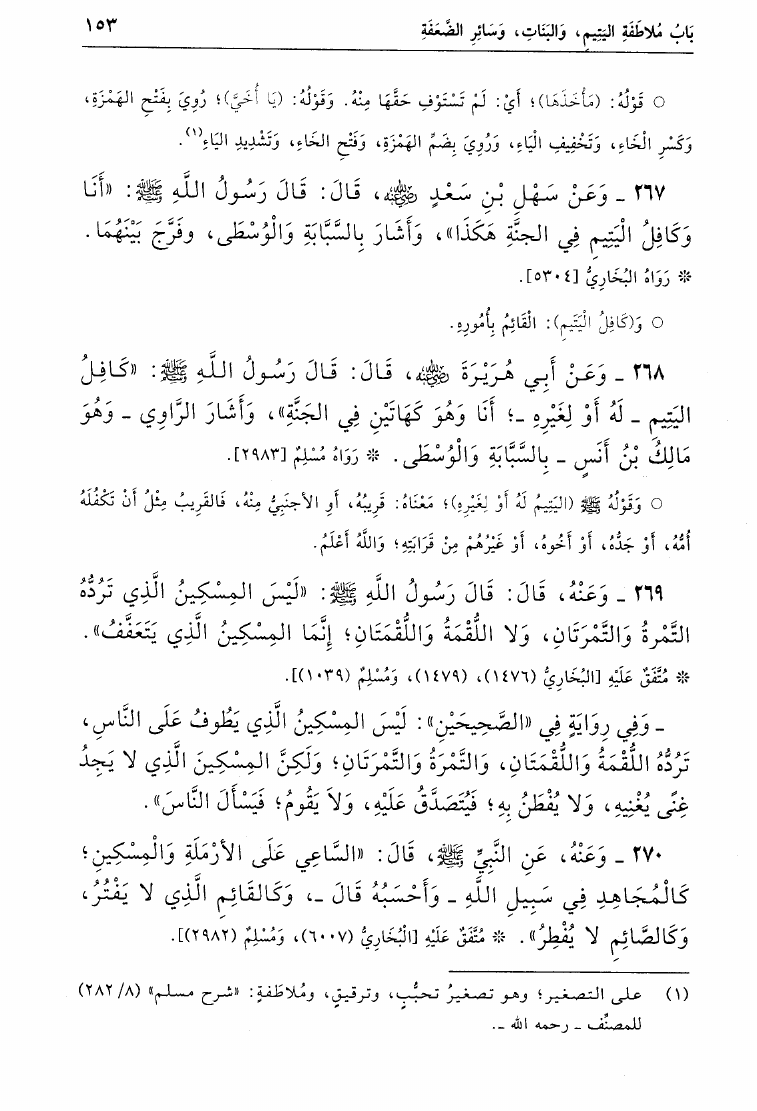 بَابُ مُلاطَفَةِ اليَتِيمِ، وَالبَنَاتِ، وَسَائِرِ الضَّعَفَةِ ١٥٣
○ قَوْلُهُ: (مَأْخَذَهَا)؛ أَيْ: لَمْ تَسْتَوْفِ حَقَّهَا مِنْهُ. وَقَوْلُهُ: (يَا أُخَيَّ)؛ رُوِيَ بِفَتْحِ الهَمْزَةِ،
وَكَسْرِ الْخَاءِ، وَتَخْفِيفِ الْيَاءِ، وَرُوِيَ بِضَمِّ الهَمْزَةِ، وَفَتْحِ الخَاءِ، وَتَشْدِيدِ اليَاءِ(١).
٢٦٧ ـ وَعَنْ سَهْلِ بْنِ سَعْدٍ رضي الله عنه، قَالَ: قَالَ رَسُولُ اللَّهِ ﷺ: «أَنَا
وَكَافِلُ الْيَتِيمِ فِي الجنَّةِ هَكَذَا»، وَأَشَارَ بِالسَّبَّابَةِ وَالْوُسْطَى، وفَرَّجَ بَيْنَهُمَا.
* رَوَاهُ البُخَارِيُّ [٥٣٠٤].
○ وَ(كَافِلُ الْيَتِيمِ): القَائِمُ بِأُمُورِهِ.
٢٦٨ ـ وَعَنْ أَبِي هُرَيْرَةَ رضي الله عنه، قَالَ: قَالَ رَسُولُ اللَّهِ ﷺ: «كَافِلُ
اليَتِيمِ ـ لَهُ أَوْ لِغَيْرِهِ ـ؛ أَنَا وَهُوَ كَهَاتَيْنِ فِي الجَنَّةِ»، وَأَشَارَ الرَّاوِي ـ وَهُوَ
مَالِكُ بْنُ أَنَسٍ ـ بِالسَّبَّابَةِ وَالْوُسْطَى. * رَوَاهُ مُسْلِمٌ [٢٩٨٣].
○ وَقَوْلُهُ ﷺ (اليَتِيمُ لَهُ أَوْ لِغَيْرِهِ)؛ مَعْنَاهُ: قَرِيبُهُ، أَوِ الأَجنَبِيُّ مِنْهُ، فَالقَرِيبُ مِثْلُ أَنْ تَكْفُلَهُ
أُمُّهُ، أَوْ جَدُّهُ، أَوْ أَخُوهُ، أَوْ غَيْرُهُمْ مِنْ قَرَابَتِهِ؛ وَاللَّهُ أَعْلَمُ.
٢٦٩ ـ وَعَنْهُ، قَالَ: قَالَ رَسُولُ اللَّهِ ﷺ: «لَيْسَ المِسْكِينُ الَّذِي تَرُدُّهُ
التَّمْرةُ وَالتَّمْرَتَانِ، وَلا اللُّقْمَةُ وَاللُّقْمَتَانِ؛ إِنَّمَا المِسْكِينُ الَّذِي يَتَعَفَّفُ».
* مُتَّفَقٌ عَلَيْهِ [البُخَارِيُّ (١٤٧٦)، (١٤٧٩)، وَمُسْلِمٌ (١٠٣٩)].
ـ وَفِي رِوَايَةٍ فِي «الصَّحِيحَيْنِ»: لَيْسَ المِسْكِينُ الَّذِي يَطُوفُ عَلَى النَّاسِ،
تَرُدُّهُ اللُّقْمَةُ وَاللُّقْمَتَانِ، وَالتَّمْرَةُ وَالتَّمْرَتَانِ؛ وَلَكِنَّ المِسْكِينَ الَّذِي لا يَجِدُ
غِنًى يُغْنِيهِ، وَلا يُفْطَنُ بِهِ؛ فَيُتَصَدَّقُ عَلَيْهِ، وَلاَ يَقُومُ؛ فَيَسْأَلَ النَّاسَ».
٢٧٠ ـ وَعَنْهُ، عَنِ النَّبِيِّ ﷺ، قَالَ: «السَّاعِي عَلَى الأَرْمَلَةِ وَالْمِسْكِينِ؛
كَالْمُجَاهِدِ فِي سَبِيلِ اللَّهِ ـ وَأَحْسَبُهُ قَالَ ـ، وَكَالقَائِمِ الَّذِي لا يَفْتُرُ،
وَكَالصَّائِمِ لا يُفْطِرُ». * مُتَّفَقٌ عَلَيْهِ [الْبُخَارِيُّ (٦٠٠٧)، وَمُسْلِمٌ (٢٩٨٢)].
(١) على التصغير؛ وهو تصغيرُ تحبُّبٍ، وترقيقٍ، ومُلاطَفةٍ: «شرح مسلم» (٨/ ٢٨٢)
للمصنِّف ـ رحمه الله ـ.